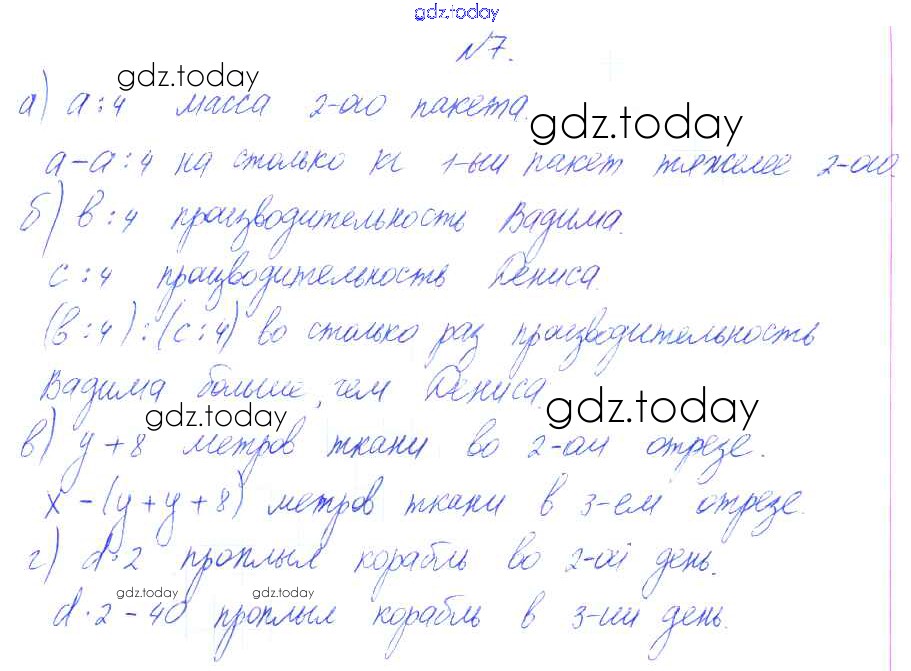 gdz.today
№7.
gdz.today
а) a:4 масса 2-ого пакета.
gdz.today
a-a:4 на столько кг 1-ый пакет тяжелее 2-ого.
б) в:4 производительность Вадима.
с:4 производительность Дениса.
(в:4):(с:4) во столько раз производительность
Вадима больше, чем Дениса.
gdz.today
gdz.today
в) y+8 метров ткани во 2-ом отрезе.
x-(y+y+8) метров ткани в 3-ем отрезе.
г) d·2 проплыл корабль во 2-ой день.
gdz.today gdz.today
d·2-40 проплыл корабль в 3-ий день.